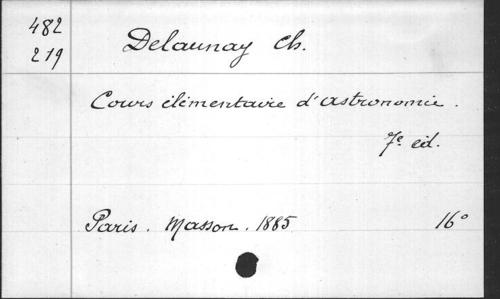 482
219
Delaunay Ch.
Cours élémentaire d'astronomie.
7e éd.
Paris. Masson. 1885 16°